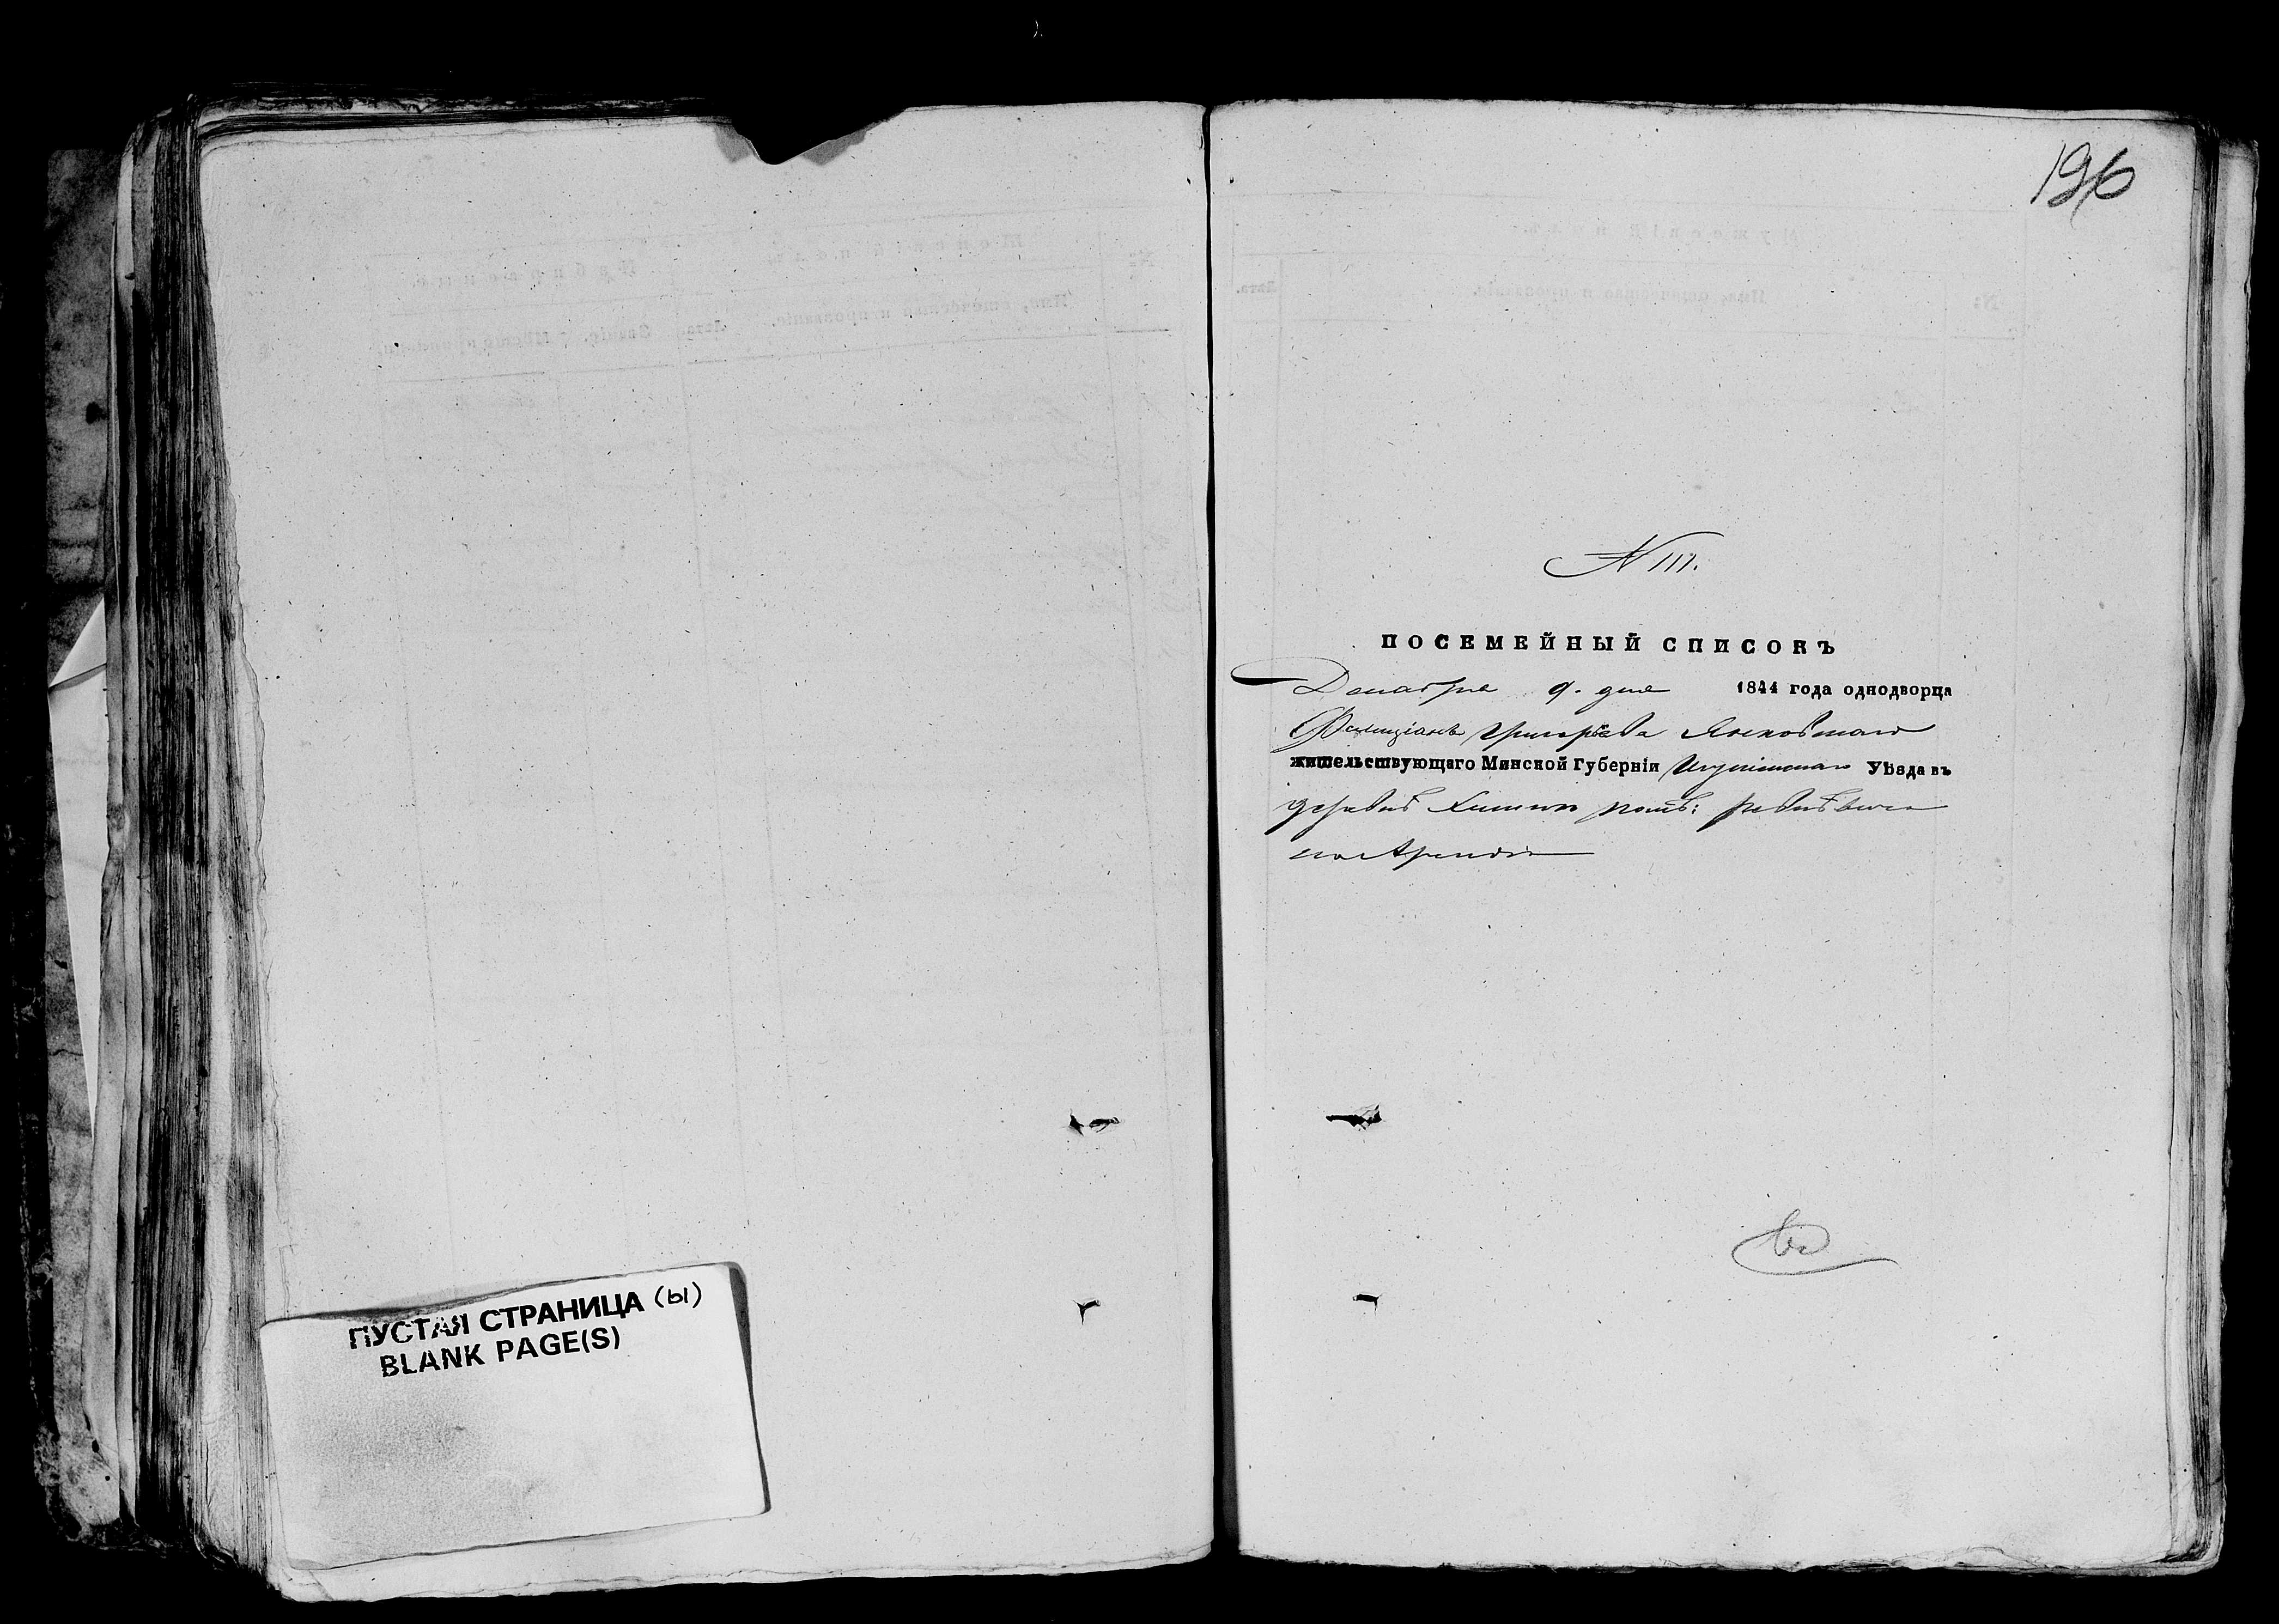 196
N 111.
ПОСЕМЕЙНЫЙ СПИСОКЪ
Декабря 9. дня 1844 года однодворца
Фелиціана Григорьева Янковскаго
жительствующаго Минской Губерніи Игуменскаго Уѣзда въ
деревнѣ помѣ:
на Арендѣ
ПУСТАЯ СТРАНИЦА (Ы)
BLANK PAGE(S)